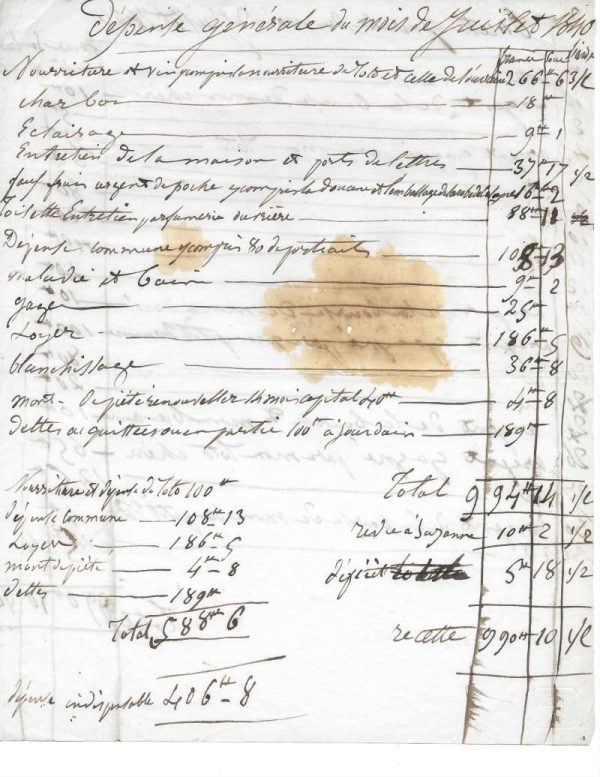 dépense générale du mois de Juillet 1840
francs sous liards
Nourriture et vin compris la nourriture de Toto et celle de l'ouvrière 266 tt 6 3/L
charbon 18 tt
Eclairage 9 tt 1
Entretien de la maison et ports de lettres 37 tt 17 1/2
argent de poche y compris la douane et l'emballage de 16 tt 2
Toilette Entretien parfumerie 88 tt 12
Dépense commune y compris 80 de portraits 108 13
maladie et bain 9 tt 2
gages 25 tt
Loyer 186 tt 5
blanchissage 36 tt 8
mont-de piété renouveller 14 mois capital 40 tt 4 tt 8
dettes acquittées ou en partie 100 tt à Jourdain 189 tt
Total 994 tt 14 1/2
redue à Suzanne 10 tt 2 1/2
déficit 5 tt 18 1/2
recette 990 tt 10 1/2
Nourriture et dépense de Toto 100 tt
dépense commune 108 tt 13
Loyer 186 tt 5
mont de piété 4 tt 8
dettes 189 tt
Total 588 tt 6
dépense indispensable 406 tt 8